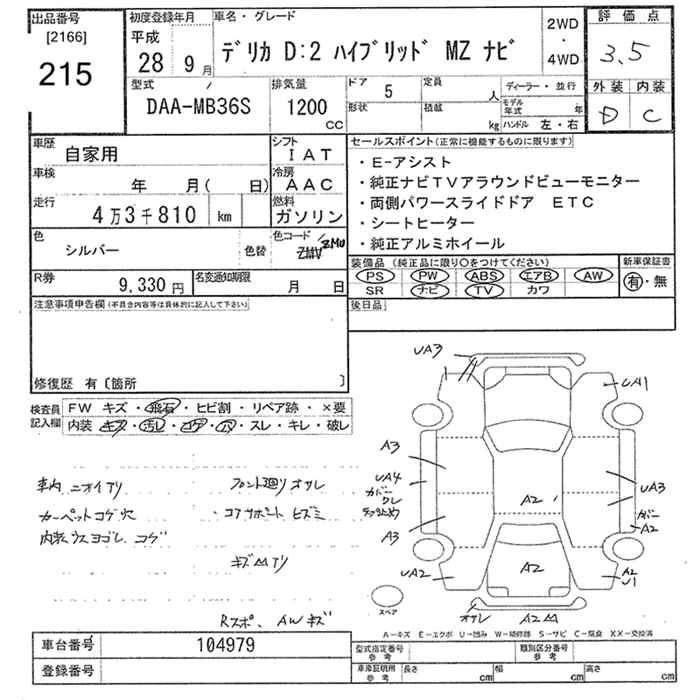 出品番号
[2166]
215
初度登録年月
平成
28 9月
車名・グレード
デリカ D:2 ハイブリッド MZ ナビ
2WD
・
4WD
評価点
3.5
外装 内装
D C
型式
DAA-MB36S
排気量
1200
CC
ドア 5
形状
定員 人
積載 kg
ディーラー・並行
モデル年式 年
ハンドル 左・右
車歴
自家用
シフト
IAT
車検
年 月( 日)
冷房
AAC
走行
4万3千810 km
燃料
ガソリン
色
シルバー
色替
色コード
ZMV ZMU
R券
9,330円
名変通知期限
月 日
セールスポイント(正常に機能するものに限ります)
・E-アシスト
・純正ナビTVアラウンドビューモニター
・両側パワースライドドア ETC
・シートヒーター
・純正アルミホイール
装備品 (純正品に限り○をつけてください)
PS PW ABS エアB AW
SR ナビ TV カワ
新車保証書
有・無
後日品
注意事項申告欄(不具合内容等は具体的に記入して下さい)
修復歴 有〔箇所 〕
検査員
記入欄
FW キズ・飛石・ヒビ割・リペア跡・×要
内装 キズ・汚レ・コゲ・穴・スレ・キレ・破レ
車内 ニオイアリ
カーペットコゲ穴
内装ウスヨゴレ、コゲ
フロント廻り オサレ
・コアサポート ヒズミ
キズ凹アリ
Rスポ、AWキズ
UA3
UA1
A3
UA4
カバー
ワレ
A3
UA2
A2
UA3
カバー
A2
A2
A2
U1
スペア
オサレ
A2凹
A-キズ E-エクボ U-凹み W-補修跡 S-サビ C-腐食 XX-交換済
車台番号
104979
登録番号
型式指定番号
参考
類別区分番号
参考
車庫証明用
参考
長さ cm
幅 cm
高さ cm